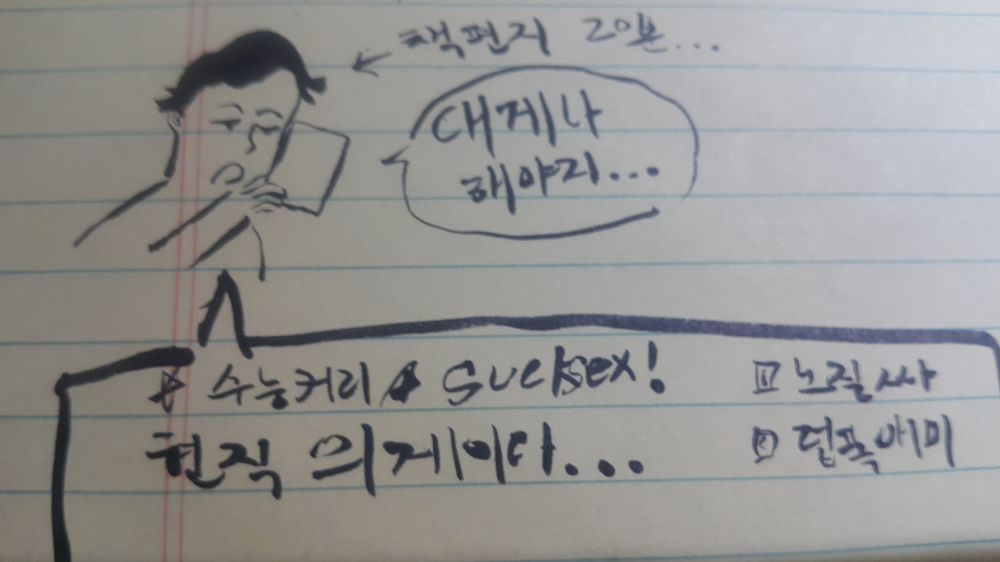 책편지 20분...
대게나
해야지...
수능커리 Sucksex!
현직 의게이다...
느질싸
덥폭애미